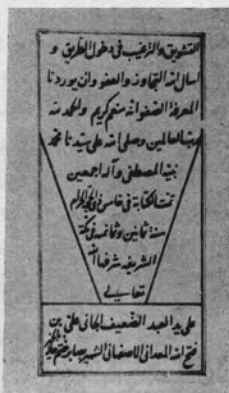 التشويق والترغيب فى دخول الطريق و
اسال الله التجاوز والعفو وان يوردنا
المعرفة الصفو انه منعم كريم والحمد لله
رب العالمين وصلى الله على سيدنا محمد
نبيه المصطفى وآله اجمعين
تمت الكتابة فى خامس ذى الحجة الحرام
سنة ثمانين وثمانمائة فى مكة
الشريفة شرفها الله
تعالى
على يد العبد الضعيف الجانى على بن
فتح الله المعدانى الاصفهانى الشهير بصابر